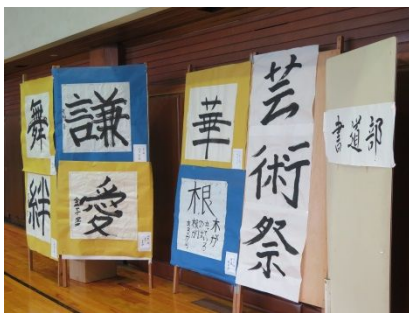 舞
絆
謙
愛
華
根
木が
芸術祭
書道部